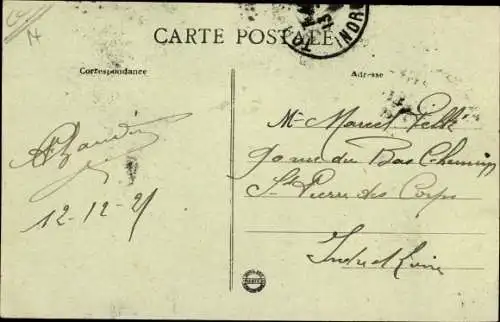 CARTE POSTALE
Correspondance
Adresse
12-12-21
Mr Marcel
90 rue du Bas Chemin
St Pierre des Corps
Indre et Loire
INDR